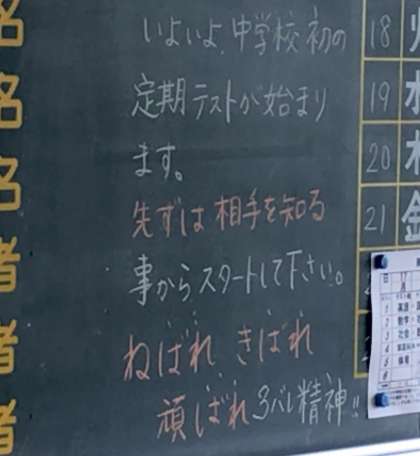 名
名
名
者
者
者
いよいよ、中学校初の
定期テストが始まり
ます。
先ずは相手を知る
事からスタートして下さい。
ねばれ、きばれ
頑ばれ 3バレ精神!!
18 火
19 水
20 木
21 金